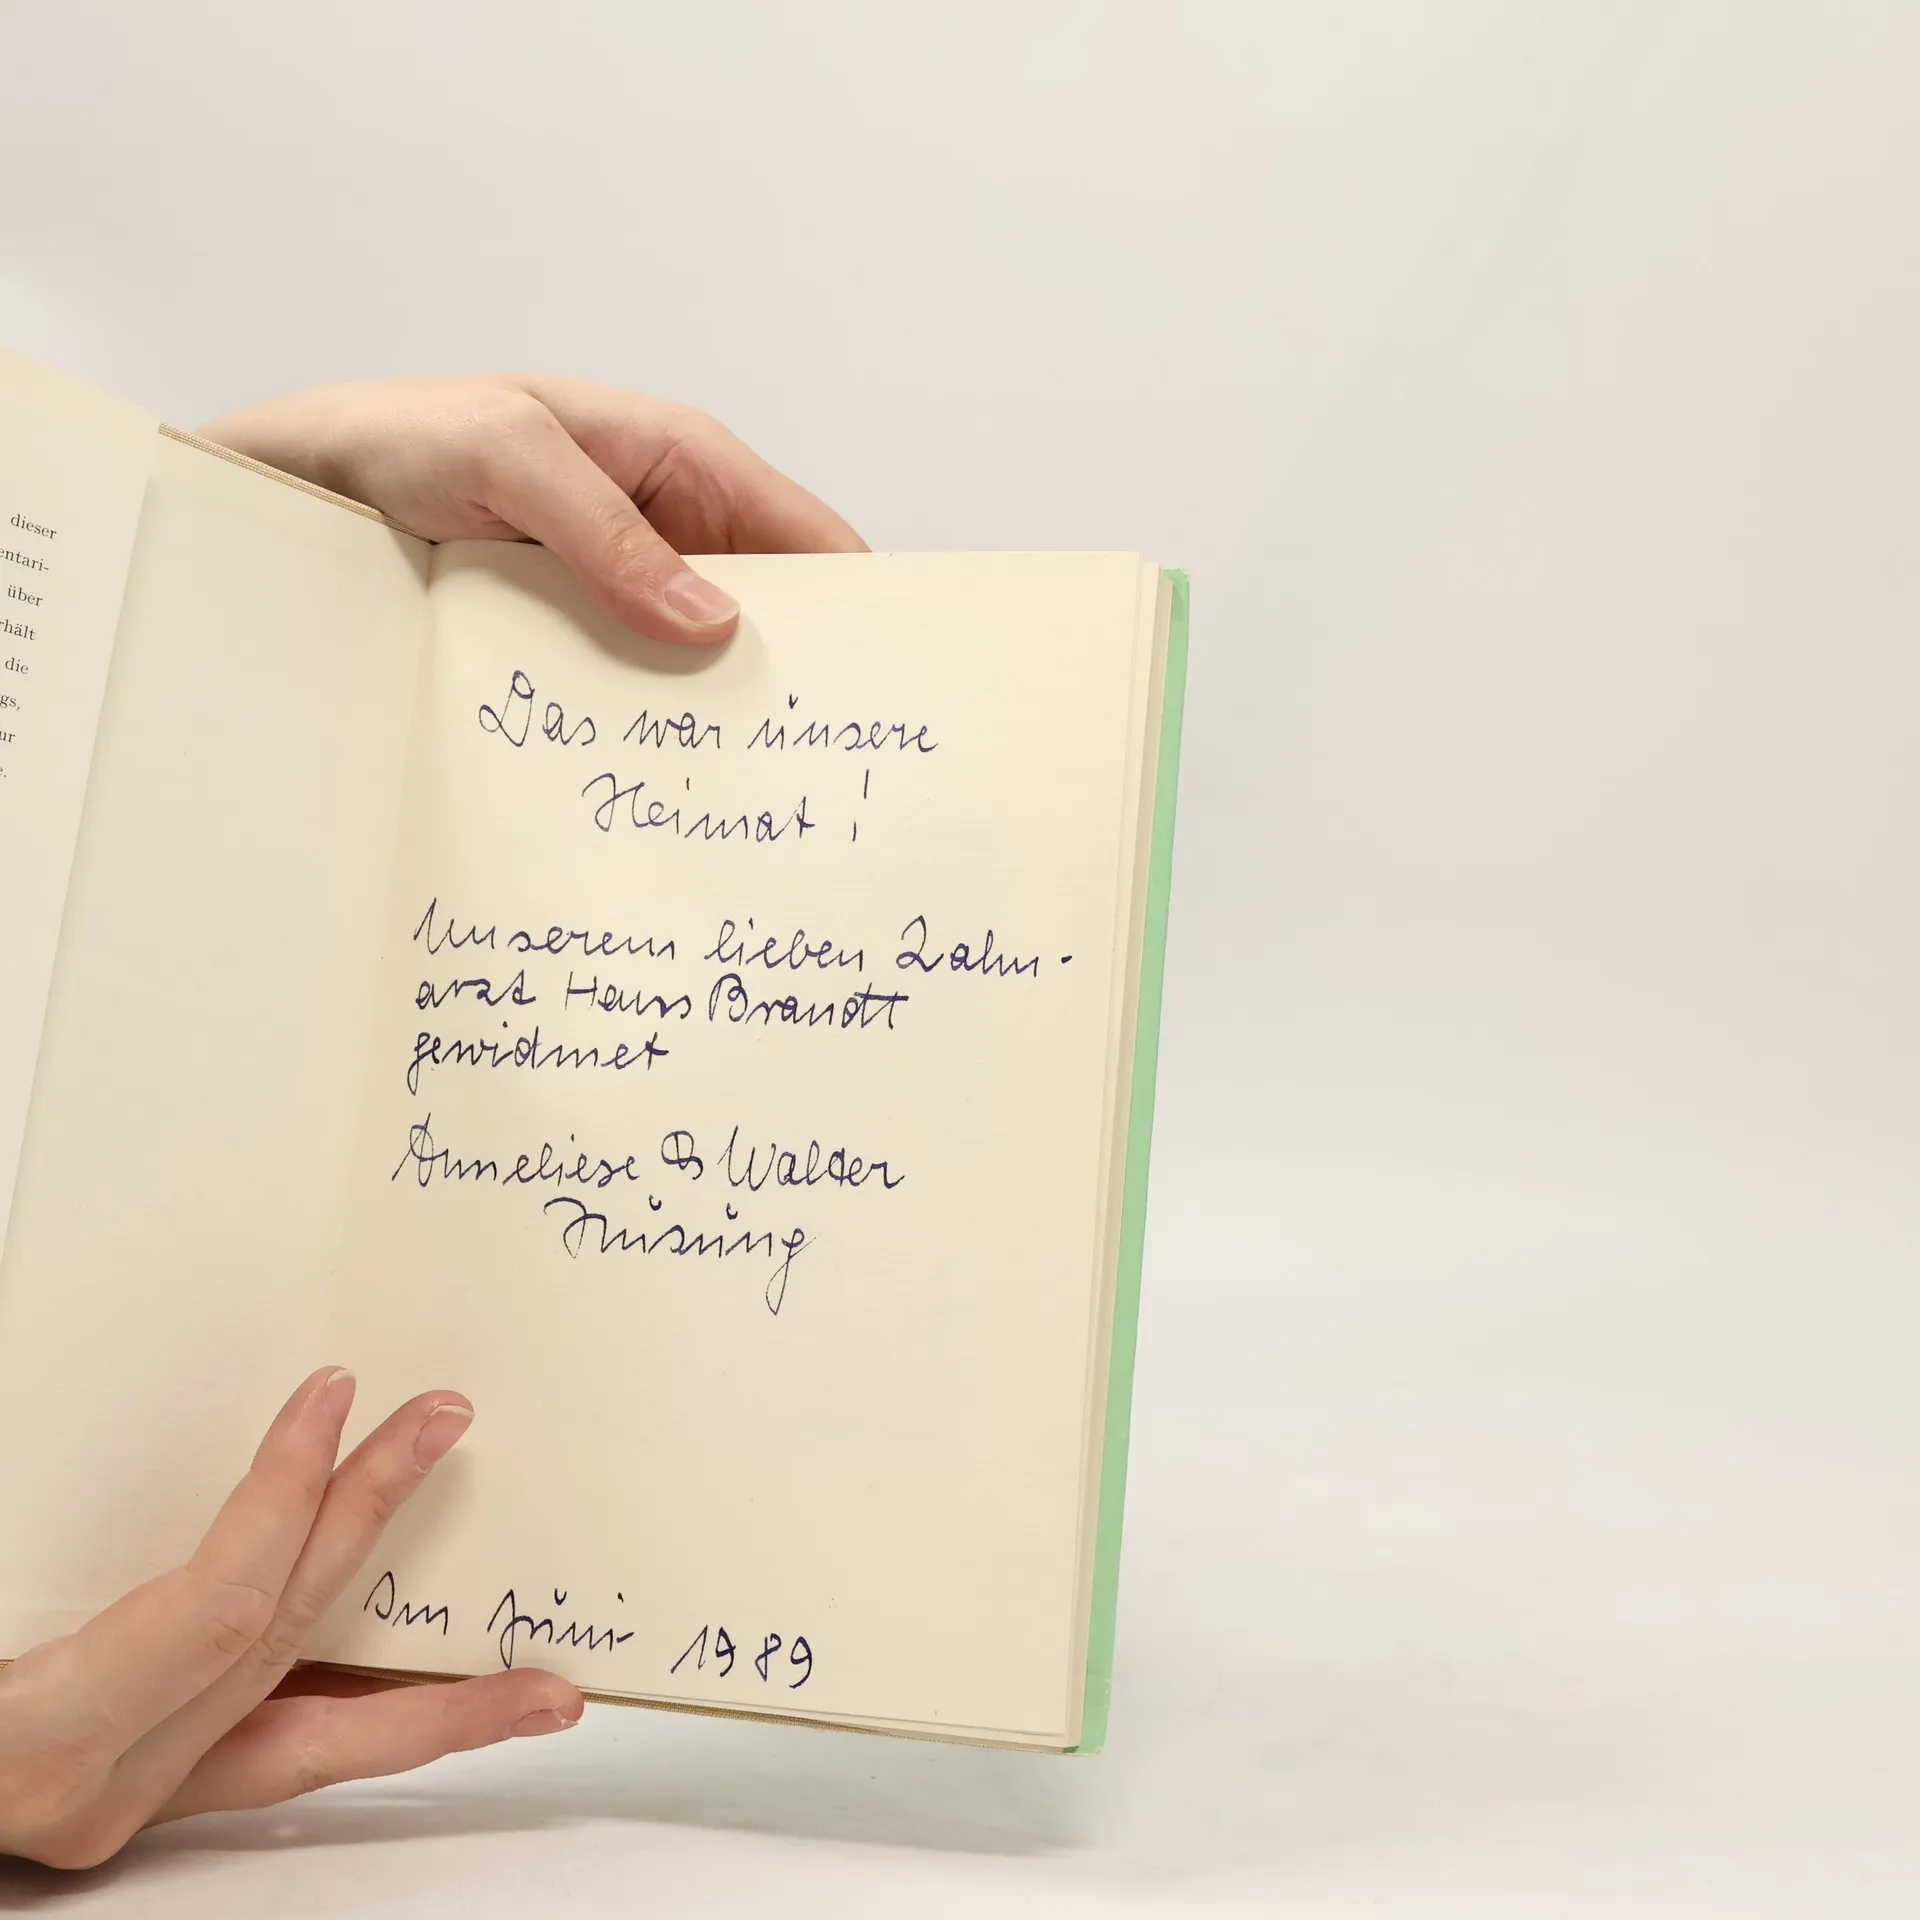 dieser
entari-
über
rhält
die
gs,
ur
e.
Das war unsere
Heimat!
Unserem lieben Zahn-
arzt Hans Brandt
gewidmet
Anneliese & Walter
Husung
Im Juni 1989